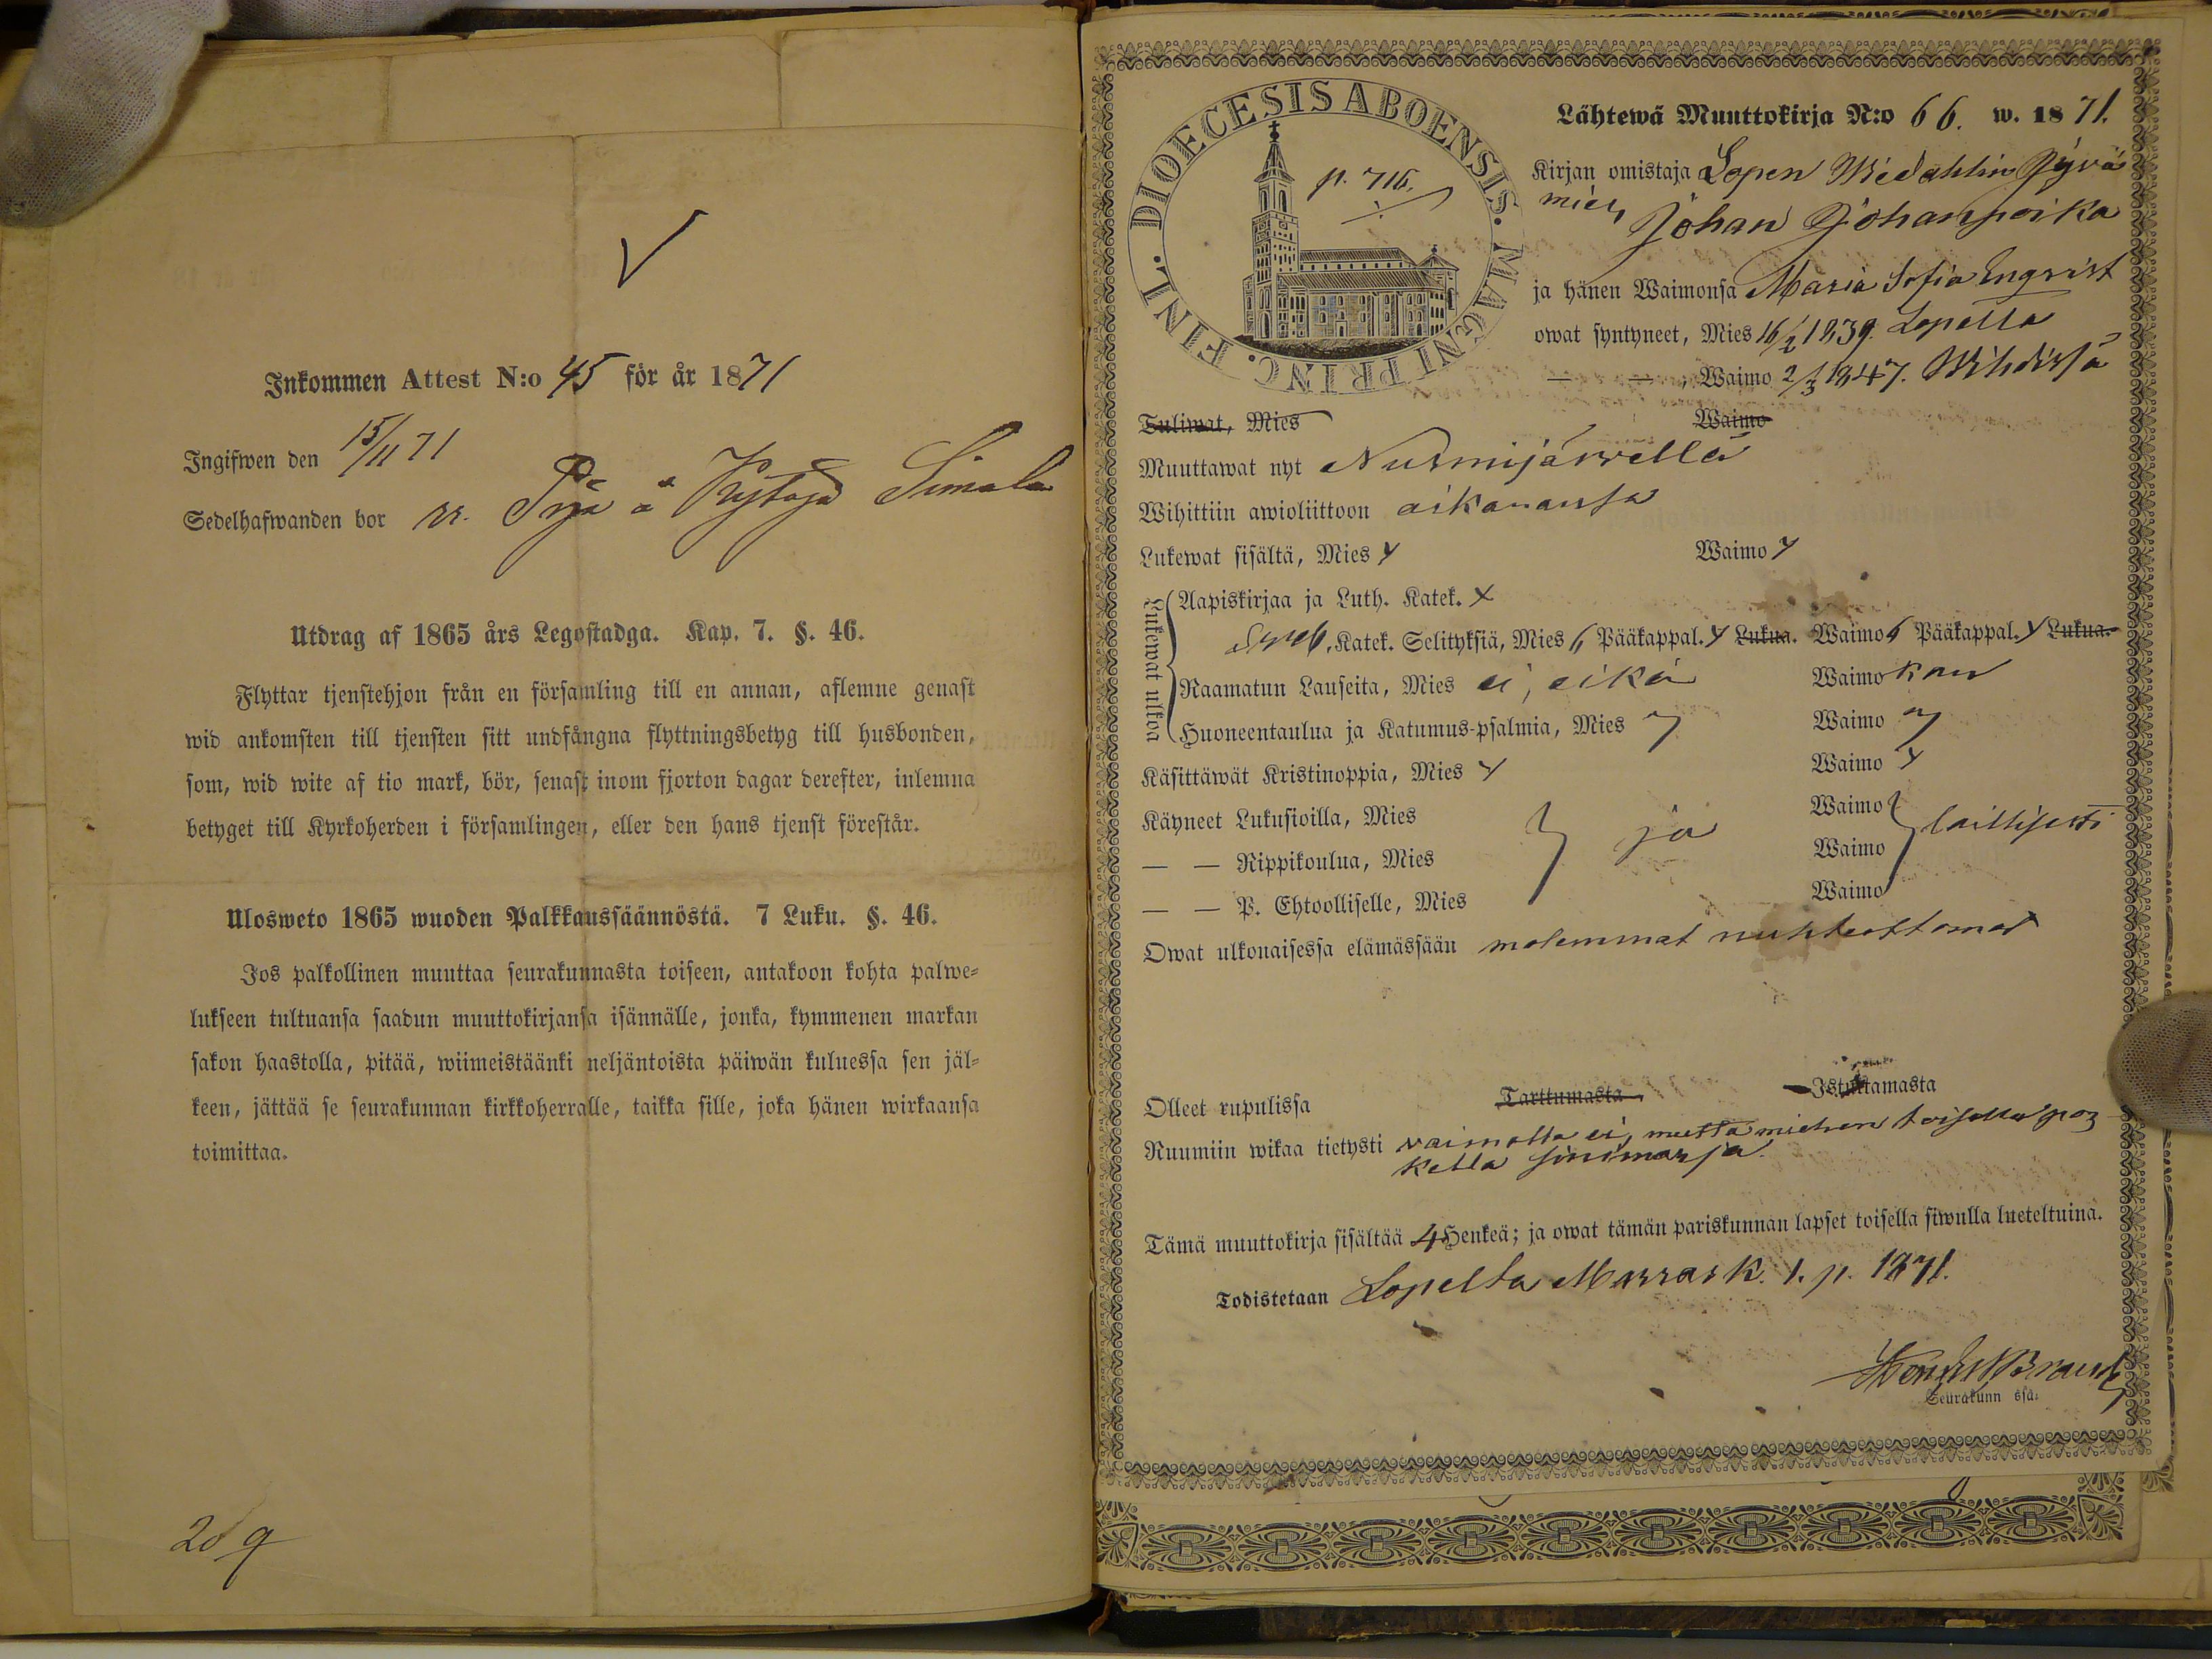 Inkommen Attest N:o 45 för år 1871
Ingifwen den 15/11 71
Sedelhafwanden bor
Utdrag af 1865 års Legostadga. Kap. 7. §. 46.
Flyttar tjenstehjon från en församling till en annan, aflemne genast
wid ankomsten till tjensten sitt undfångna flyttningsbetyg till husbonden,
som, wid wite af tio mark, bör, senast inom fjorton dagar derefter, inlemna
betyget till Kyrkoherden i församlingen, eller den hans tjenst förestår.
Ulosweto 1865 wuoden Palkkaussäännöstä. 7 Luku. §. 46.
Jos palkollinen muuttaa seurakunnasta toiseen, antakoon kohta palwe-
lukseen tultuansa saadun muuttokirjansa isännälle, jonka, kymmenen markan
sakon haastolla, pitää, wiimeistäänki neljäntoista päiwän kuluessa sen jäl-
keen, jättää se seurakunnan kirkkoherralle, taikka sille, joka hänen wirkaansa
toimittaa.
209
FINL. DIOECESIS ABOENSIS. MAGNI PRINC.
p. 716.
Lähtewä Muuttokirja N:o 66. w. 1871.
Kirjan omistaja Lopen
mies Johan Johanpoika
ja hänen Waimonsa Maria Sofia Engvist
owat syntyneet, Mies 16/2 1839. Lopella
— — Waimo 2/3 1847. Wihdissä
Tuliwat, Mies Waimo
Muuttawat nyt Nurmijärvellä
Wihittiin awioliittoon aikanansa
Lukewat sisältä, Mies Waimo
Lukewat ulkoa
Aapiskirjaa ja Luth. Katek. x
Sweb. Katek. Selityksiä, Mies 6 Pääkappal. Lukua. Waimo 6 Pääkappal. Lukua.
Raamatun Lauseita, Mies ei, eikä Waimokan
Huoneentaulua ja Katumus-psalmia, Mies Waimo
Käsittäwät Kristinoppia, Mies Waimo
Käyneet Lukusioilla, Mies Waimo
— — Rippikoulua, Mies ja Waimo laillisesti
— — P. Ehtoolliselle, Mies Waimo
Owat ulkonaisessa elämässään molemmat nuhteettomat
Olleet rupulissa Tarttumasta Istuttamasta
Ruumiin wikaa tietysti vaimolla ei, mutta miehen toisella pos
kella sinimarja
Tämä muuttokirja sisältää 4 Henkeä; ja owat tämän pariskunnan lapset toisella siwulla lueteltuina.
Todistetaan Lopelta Marrask. 1. p. 1871.
Seurakunn ssa.